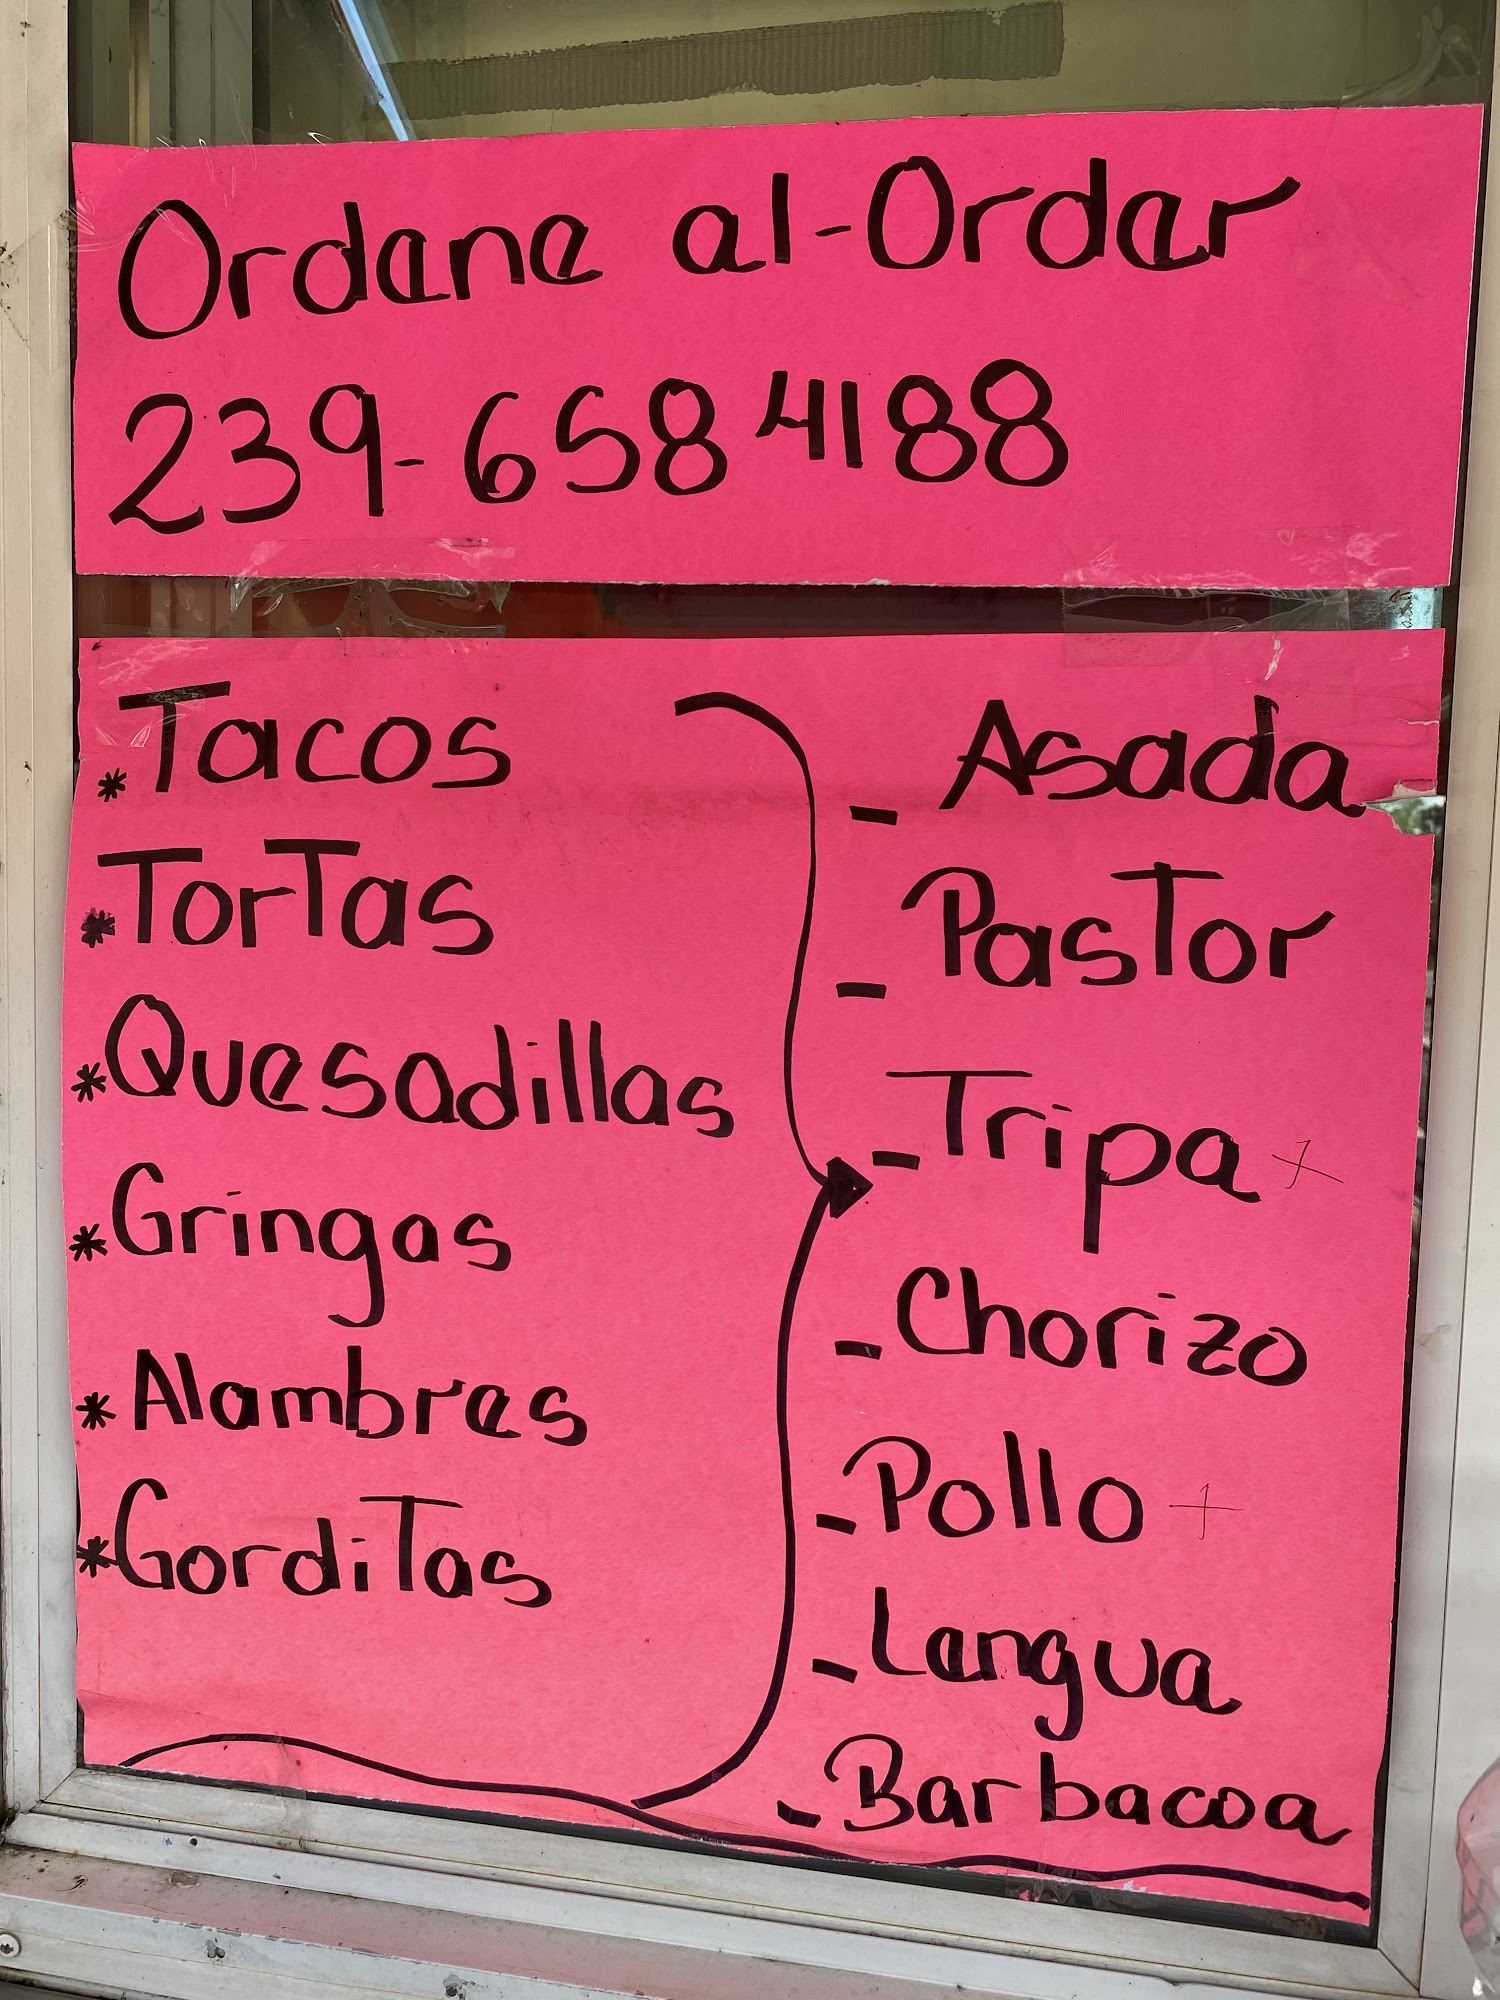 Ordene al-Order
239-658 4188
* Tacos
* Tortas
* Quesadillas
* Gringas
* Alambres
* Gorditas
- Asada
- Pastor
- Tripa +
- Chorizo
- Pollo +
- Lengua
- Barbacoa